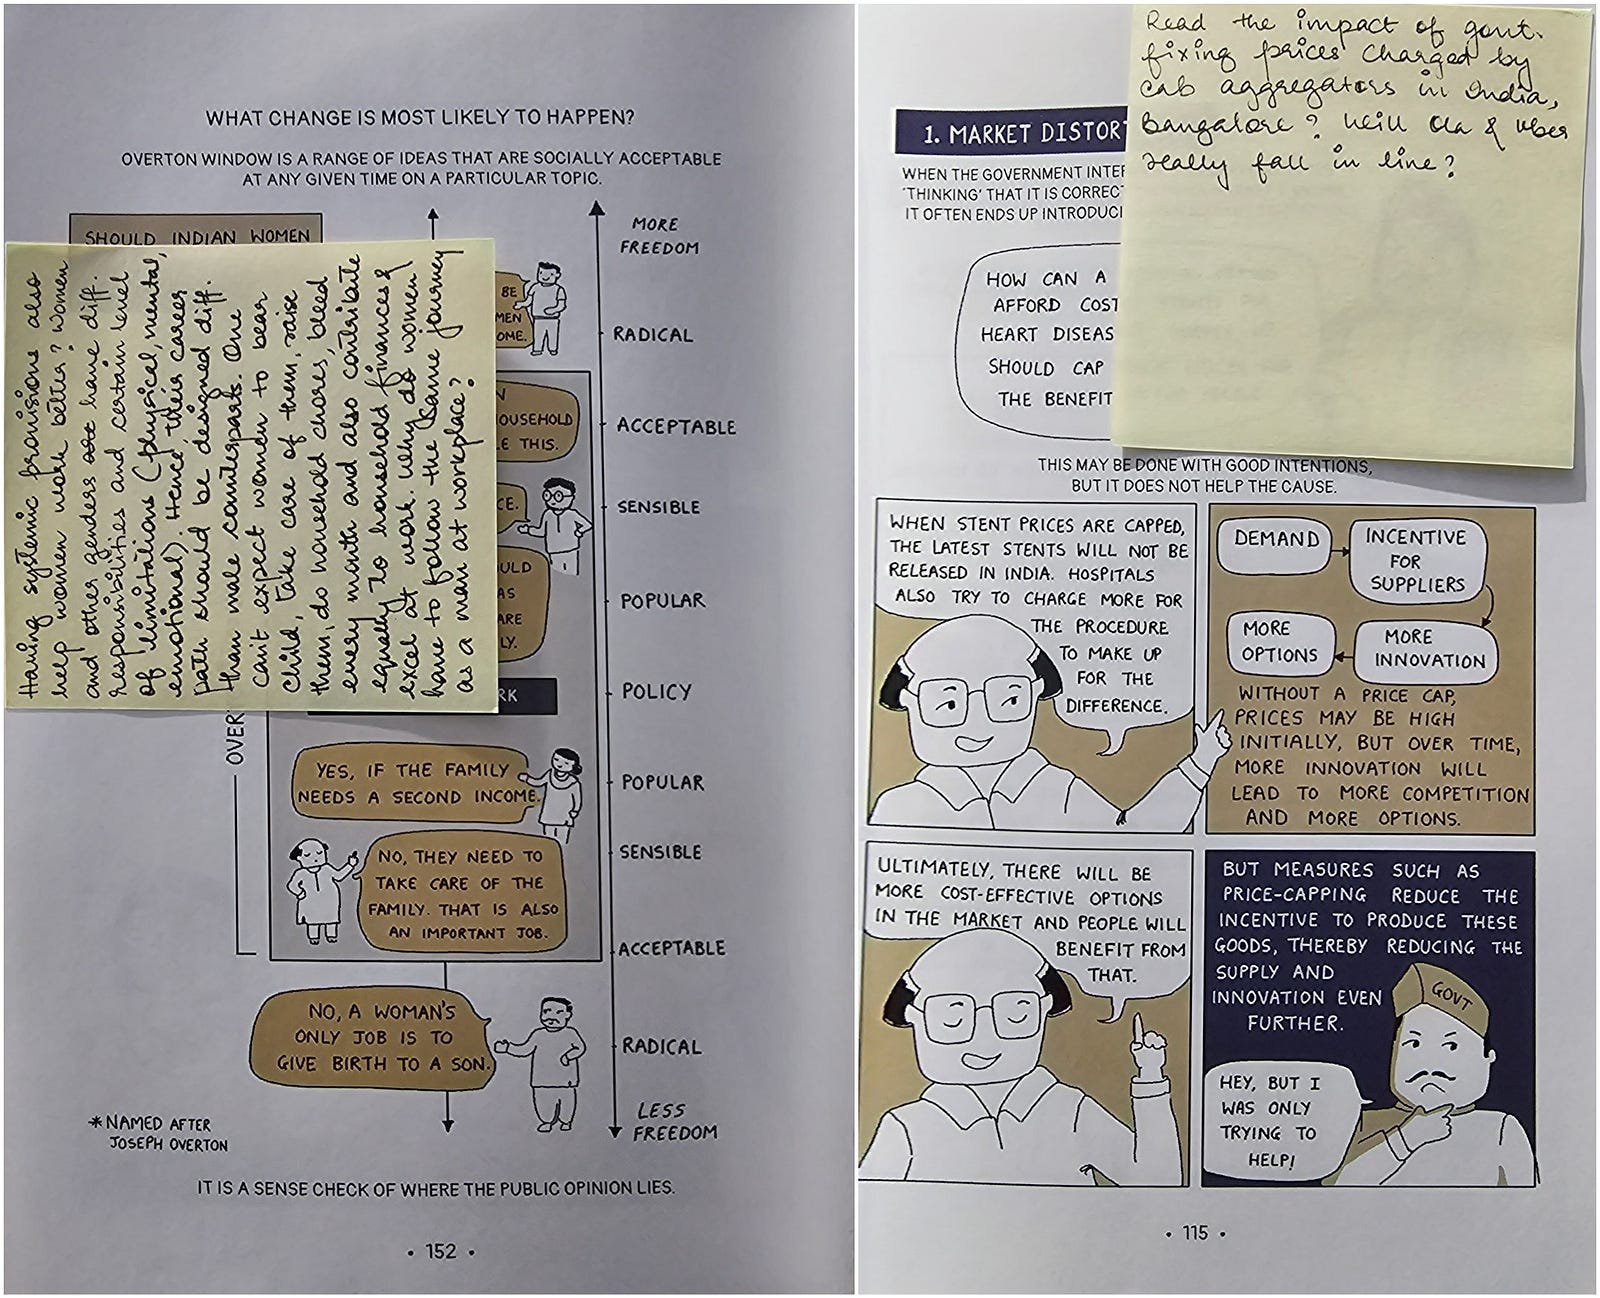 WHAT CHANGE IS MOST LIKELY TO HAPPEN?
OVERTON WINDOW IS A RANGE OF IDEAS THAT ARE SOCIALLY ACCEPTABLE
AT ANY GIVEN TIME ON A PARTICULAR TOPIC.
SHOULD INDIAN WOMEN
Having systemic provisions also
help women work better? Women
and other genders have diff.
responsibilities and certain level
of limitations (physical, mental,
emotional). Hence their career
path should be designed diff.
than male counterparts. One
can't expect women to bear
child, take care of them, raise
them, do household chores, bleed
every month and also contribute
equally to household finances &
excel at work. Why do women
have to follow the same journey
as a man at workplace?
MORE
FREEDOM
BE
MEN
OME.
RADICAL
N
OUSEHOLD
E THIS.
ACCEPTABLE
CE.
SENSIBLE
OULD
AS
ARE
LY.
POPULAR
RK
POLICY
OVER
YES, IF THE FAMILY
NEEDS A SECOND INCOME.
POPULAR
NO, THEY NEED TO
TAKE CARE OF THE
FAMILY. THAT IS ALSO
AN IMPORTANT JOB.
SENSIBLE
ACCEPTABLE
NO, A WOMAN'S
ONLY JOB IS TO
GIVE BIRTH TO A SON.
RADICAL
LESS
FREEDOM
*NAMED AFTER
JOSEPH OVERTON
IT IS A SENSE CHECK OF WHERE THE PUBLIC OPINION LIES.
• 152 •
Read the impact of govt.
fixing prices charged by
cab aggregators in India,
Bangalore? Will Ola & Uber
really fall in line?
1. MARKET DISTOR
WHEN THE GOVERNMENT INTER
'THINKING' THAT IT IS CORREC
IT OFTEN ENDS UP INTRODUCI
HOW CAN A
AFFORD COST
HEART DISEAS
SHOULD CAP
THE BENEFIT
THIS MAY BE DONE WITH GOOD INTENTIONS,
BUT IT DOES NOT HELP THE CAUSE.
WHEN STENT PRICES ARE CAPPED,
THE LATEST STENTS WILL NOT BE
RELEASED IN INDIA. HOSPITALS
ALSO TRY TO CHARGE MORE FOR
THE PROCEDURE
TO MAKE UP
FOR THE
DIFFERENCE.
DEMAND
INCENTIVE
FOR
SUPPLIERS
MORE
OPTIONS
MORE
INNOVATION
WITHOUT A PRICE CAP,
PRICES MAY BE HIGH
INITIALLY, BUT OVER TIME,
MORE INNOVATION WILL
LEAD TO MORE COMPETITION
AND MORE OPTIONS.
ULTIMATELY, THERE WILL BE
MORE COST-EFFECTIVE OPTIONS
IN THE MARKET AND PEOPLE WILL
BENEFIT FROM
THAT.
BUT MEASURES SUCH AS
PRICE-CAPPING REDUCE THE
INCENTIVE TO PRODUCE THESE
GOODS, THEREBY REDUCING THE
SUPPLY AND
INNOVATION EVEN
FURTHER.
GOVT
HEY, BUT I
WAS ONLY
TRYING TO
HELP!
• 115 •